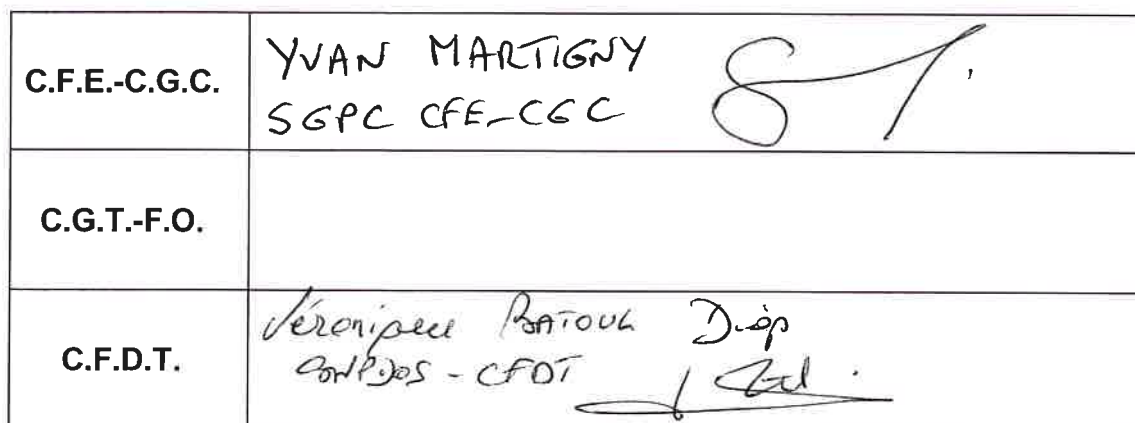 C.F.E.-C.G.C.
YVAN MARTIGNY
SGPC CFE-CGC
C.G.T.-F.O.
C.F.D.T.
Véronique BATOUL Diop
- CFDT